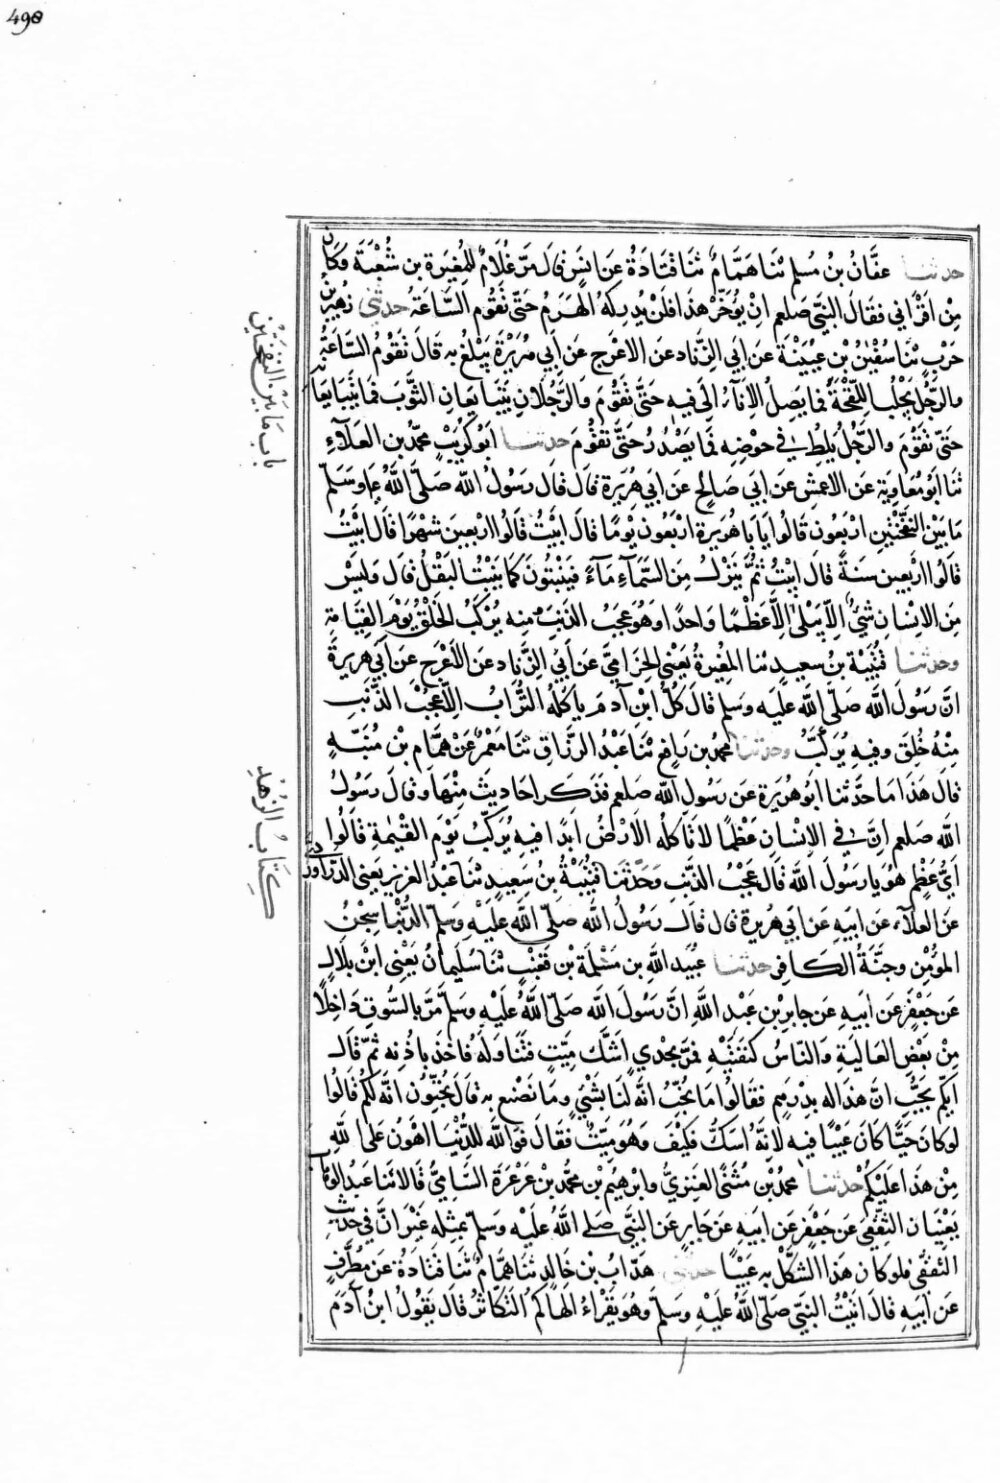 490
حدثنا عفان بن مسلم ثنا همام ثنا قتادة عن انس قال مر غلام للمغيرة بن شعبة وكان
من اقراني فقال النبي صلعم ان يؤخر هذا فلن يدركه الهرم حتى تقوم الساعة حدثني زهير بن
حرب ثنا سفين بن عيينة عن ابي الزناد عن الاعرج عن ابي هريرة يبلغ به قال تقوم الساعة
والرجل يحلب اللقحة فما يصل الاناء الى فيه حتى تقوم والرجلان يتبايعان الثوب فما يتبايعا
حتى تقوم والرجل يلط في حوضه فما يصدر حتى تقوم حدثنا ابو كريب محمد بن العلاء
ثنا ابو معاوية عن الاعمش عن ابي صالح عن ابي هريرة قال قال رسول الله صلى الله ع وسلم
ما بين النفختين اربعون قالوا يا با هريرة اربعون يوما قال ابيت قالوا اربعين شهرا قال ابيت
قالوا اربعين سنة قال ابيت ثم ينزل من السماء ماء فينبتون كما ينبت البقل قال وليس
من الانسان شئ الا يبلى الا عظما واحدا وهو عجب الذنب منه يركب الخلق يوم القيامة
وحدثنا قتيبة بن سعيد ثنا المغيرة يعني الحزامي عن ابي الزناد عن الاعرج عن ابي هريرة
ان رسول الله صلى الله عليه وسلم قال كل ابن آدم ياكله التراب الا عجب الذنب
منه خلق وفيه يركب وحدثنا محمد بن رافع ثنا عبد الرزاق ثنا معمر عن همام بن منبه
قال هذا ما حدثنا ابو هريرة عن رسول الله صلعم فذكر احاديث منها وقال رسول
الله صلعم ان في الانسان عظما لا تاكله الارض ابدا فيه يركب يوم القيمة قالوا
اي عظم هو يا رسول الله قال عجب الذنب وحدثنا قتيبة بن سعيد ثنا عبد العزيز يعني الدراوردي
عن العلاء عن ابيه عن ابي هريرة قال قال رسول الله صلى الله عليه وسلم الدنيا سجن
المؤمن وجنة الكافر حدثنا عبيد الله بن مسلمة بن قعنب ثنا سليمان يعني ابن بلال
عن جعفر عن ابيه عن جابر بن عبد الله ان رسول الله صلى الله عليه وسلم مر بالسوق داخلا
من بعض العالية والناس كنفتيه فمر بجدي اسك ميت فتناوله فاخذ باذنه ثم قال
ايكم يحب ان هذا له بدرهم فقالوا ما نحب انه لنا بشئ وما نصنع به قال تحبون انه لكم قالوا
لو كان حيا كان عيبا فيه لانه اسك فكيف وهو ميت فقال فوالله للدنيا اهون على الله
من هذا عليكم حدثنا محمد بن مثنى العنزي وابرهيم بن محمد بن عرعرة السامي قالا ثنا عبد الوهاب
يعنيان الثقفي عن جعفر عن ابيه عن جابر عن النبي صلى الله عليه وسلم بمثله غير ان في حديث
الثقفي فلو كان هذا الشكل به عيبا حدثنا هداب بن خالد ثنا همام ثنا قتادة عن مطرف
عن ابيه قال اتيت النبي صلى الله عليه وسلم وهو يقراء الهاكم التكاثر قال يقول ابن آدم
باب ما بين النفختين
كتاب الزهد